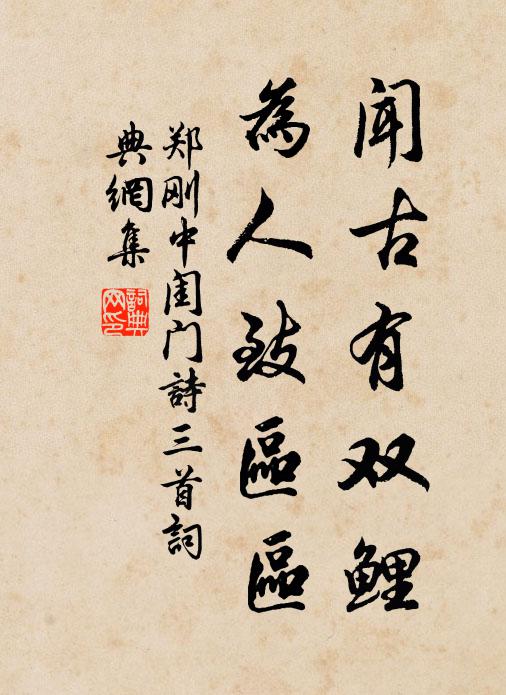 闻古有双鲤
為人致區區
郑刚中闺门詩三首詞
典網集
詞典网印